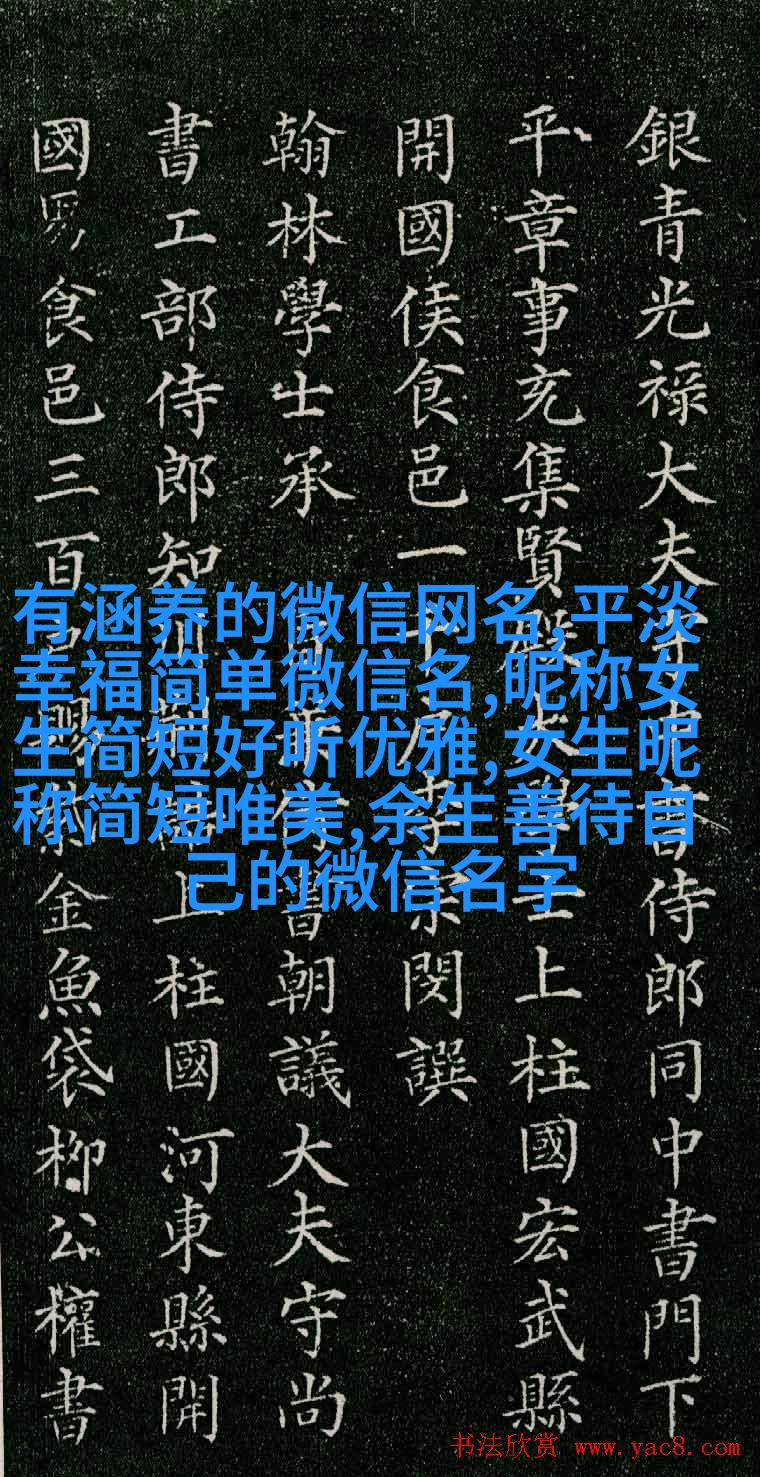 銀青光祿大夫守中書侍郎同中書門下
平章事充集賢殿大學士上柱國宏武縣
開國侯食邑一千戶李宗閔譔
翰林學士承旨兼侍書朝議大夫守尚
書工部侍郎知制上柱國河東縣開
國男食邑三百戶賜紫金魚袋柳公權書
有涵养的微信网名,平淡
幸福简单微信名,昵称女
生简短好听优雅,女生昵
称简短唯美,余生善待自
己的微信名字
书法欣赏 www.yac8.com